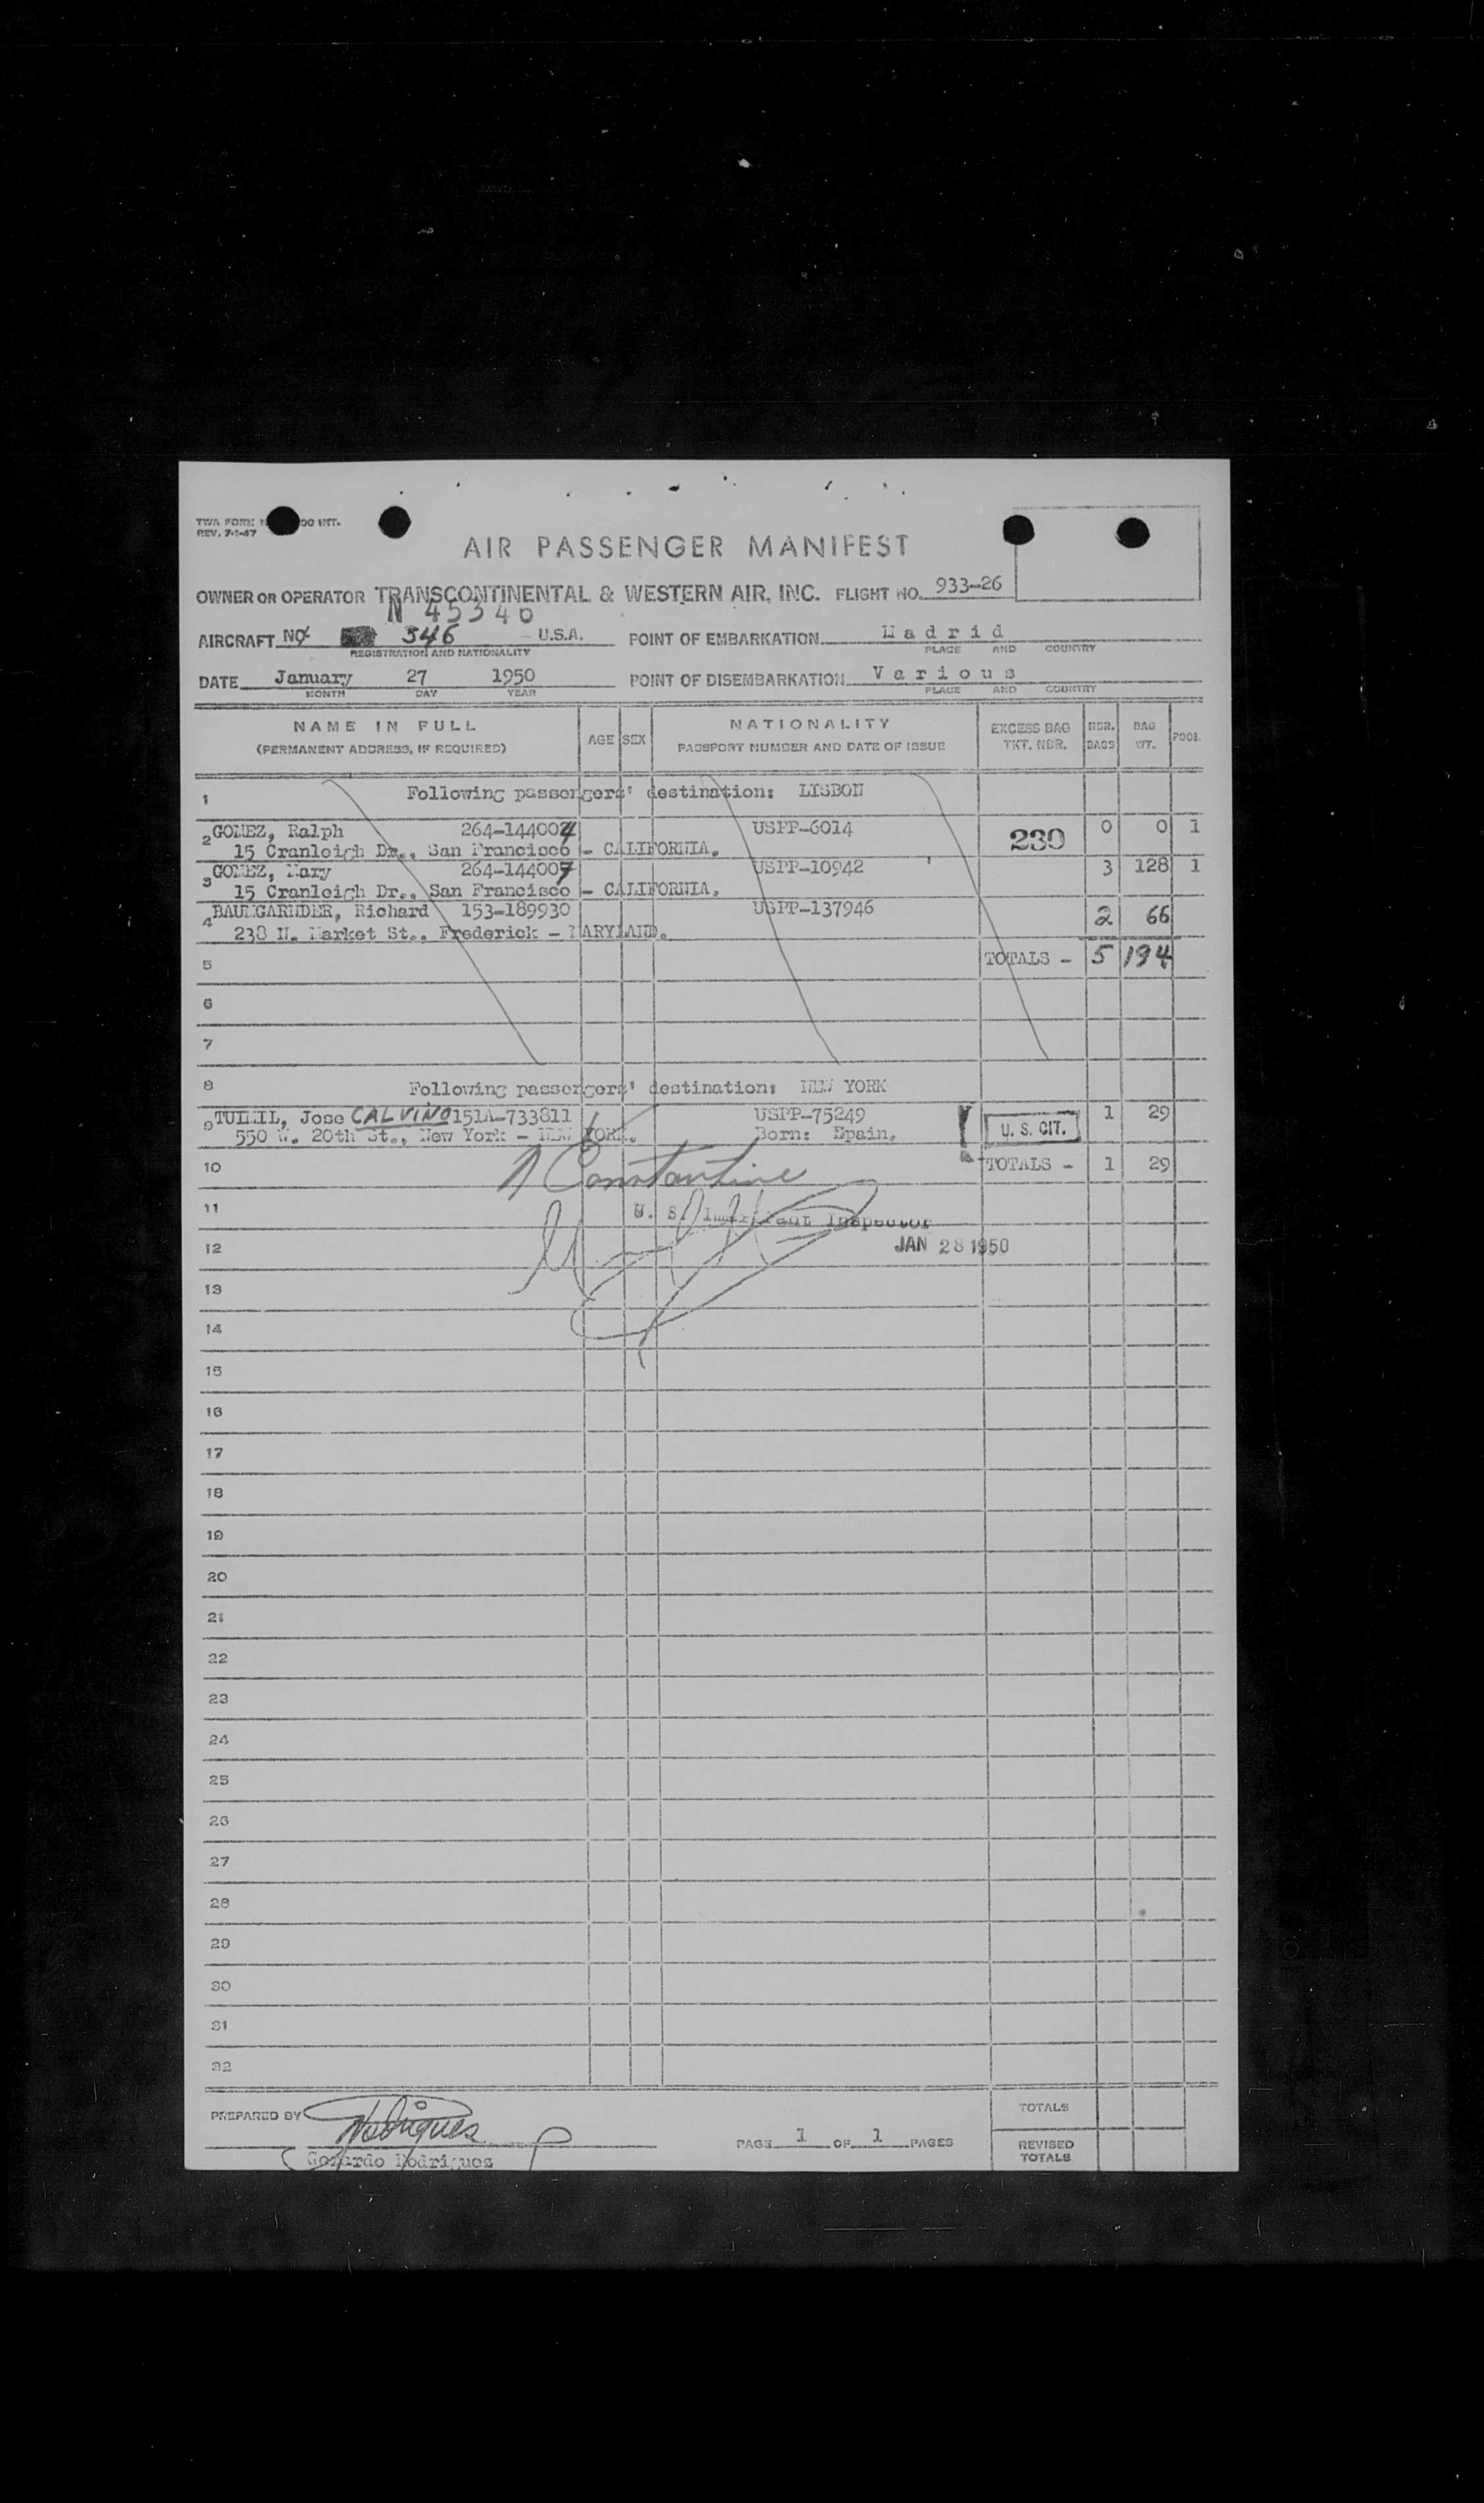 TWA FORM OO INT.
REV. 7-1-47
AIR PASSENGER MANIFEST
OWNER OR OPERATOR TRANSCONTINENTAL & WESTERN AIR, INC. FLIGHT NO. 933-26
N 45346
AIRCRAFT NO 346 - U.S.A. POINT OF EMBARKATION Madrid
REGISTRATION AND NATIONALITY PLACE AND COUNTRY
DATE January 27 1950 POINT OF DISEMBARKATION Various
MONTH DAY YEAR PLACE AND COUNTRY
NAME IN FULL AGE SEX NATIONALITY EXCESS BAG NBR. BAG POOL
(PERMANENT ADDRESS, IF REQUIRED) PASSPORT NUMBER AND DATE OF ISSUE TKT. NBR. BAGS WT.
1 Following passengers' destination: LISBON
2 GOMEZ, Ralph 264-144004 USPP-6014 230 0 0 1
15 Cranleigh Dr., San Francisco - CALIFORNIA.
3 GOMEZ, Mary 264-144007 USPP-10942 3 128 1
15 Cranleigh Dr., San Francisco - CALIFORNIA.
4 BAUMGARNDER, Richard 153-189930 USPP-137946 2 66
238 N. Market St., Frederick - MARYLAND.
5 TOTALS - 5 194
6
7
8 Following passengers' destination: NEW YORK
9 Jose CALVINO 151A-733811 USPP-75249 U. S. CIT. 1 29
550 W. 20th St., New York - NEW YORK. Born: Spain.
10 TOTALS - 1 29
Constantine
11 U. S. Immigrant Inspector
12 JAN 28 1950
13
14
15
16
17
18
19
20
21
22
23
24
25
26
27
28
29
30
31
32
PREPARED BY Rodriguez TOTALS
PAGE 1 OF 1 PAGES REVISED
Gerardo Rodriguez TOTALS